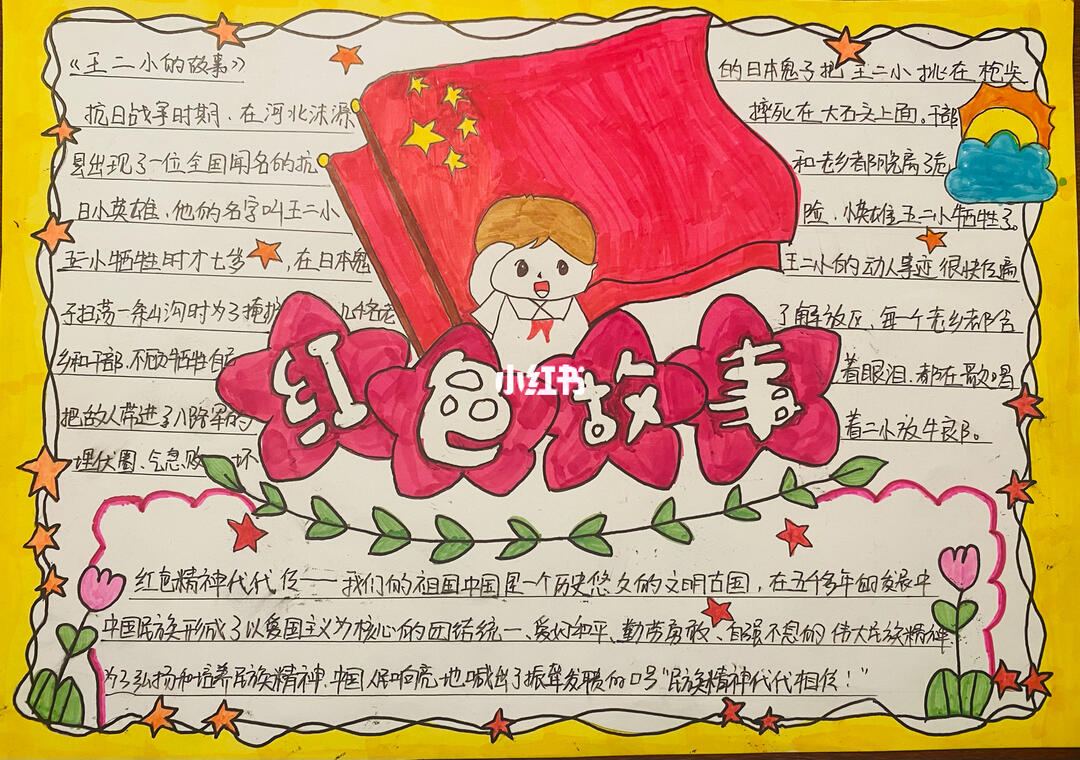 《王二小的故事》
抗日战争时期、在河北涞源
县出现了一位全国闻名的抗
日小英雄、他的名字叫王二小
王二小牺牲时才七岁,在日本鬼
子扫荡一条山沟时为了掩护几十名老
乡和干部、不顾牺牲自己
把敌人带进了八路军的
埋伏圈、气急败坏
的日本鬼子把王二小挑在枪尖
摔死在大石头上面。干部
和老乡都脱离了危
险、小英雄王二小牺牲了。
王二小的动人事迹很快传遍
了解放区、每一个老乡都含
着眼泪、都在歌唱
着二小放牛良阝。
红色故事
小红书
红色精神代代传——我们的祖国中国是一个历史悠久的文明古国,在五千多年的发展中
中国民族形成了以爱国主义为核心的团结统一、爱好和平、勤劳勇敢、自强不息的伟大民族精神
为了弘扬和培养民族精神、中国人民响亮地喊出了振聋发聩的口号"民族精神代代相传!"